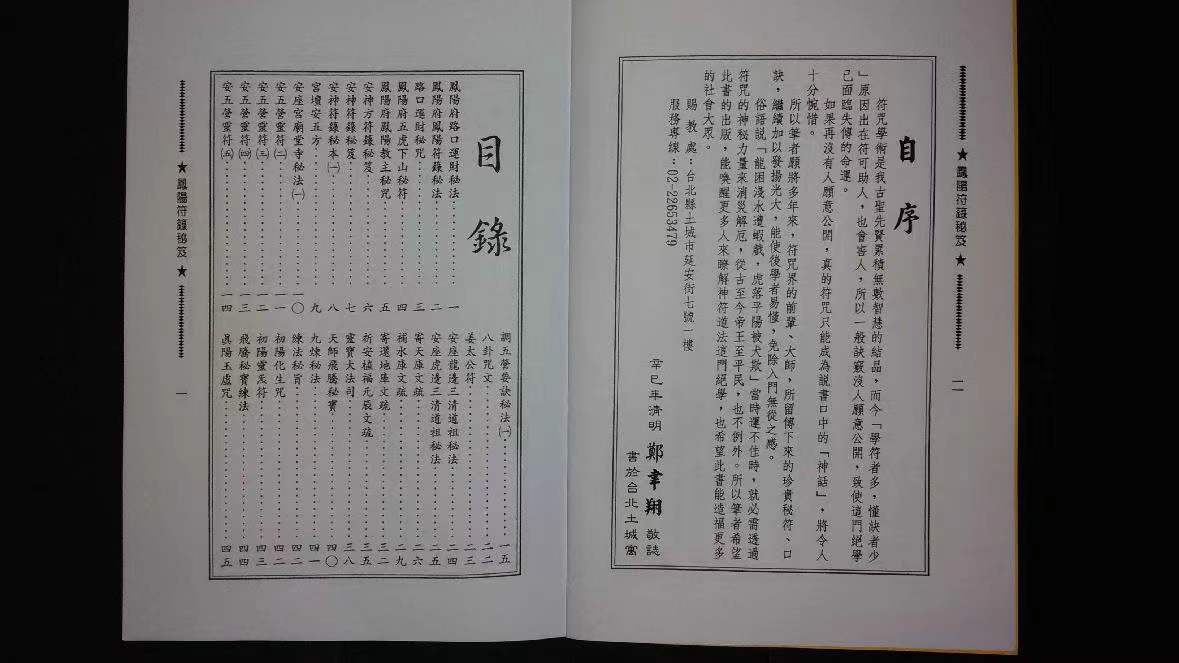 ★ 鳳陽符籙秘笈 ★
二
自序
符咒學術是我古聖先賢累積無數智慧的結晶，而今「學符者多，懂訣者少
」原因出在符可助人，也會害人，所以一般訣竅沒人願意公開，致使這門絕學
已面臨失傳的命運。
如果再沒有人願意公開，真的符咒只能成為說書口中的「神話」，將令人
十分惋惜。
所以筆者願將多年來，符咒界的前輩、大師，所留傳下來的珍貴秘符、口
訣，繼續加以發揚光大，能使後學者易懂，免除入門無從之感。
俗語說「龍困淺水遭蝦戲，虎落平陽被犬欺」當時運不佳時，就必需透過
符咒的神秘力量來消災解厄，從古至今帝王至平民，也不例外。所以筆者希望
此書的出版，能喚醒更多人來瞭解神符道法這門絕學，也希望此書能造福更多
的社會大眾。
賜教處：台北縣土城市延安街七號一樓
服務專線：02-22653479
辛巳年清明 鄭聿翔 敬誌
書於台北土城寓
目錄
鳳陽府路口運財秘法………一
鳳陽府鳳陽符籙秘法………二
路口運財秘咒………三
鳳陽府五虎下山秘符………四
鳳陽府鳳陽教主秘咒………五
安神方符籙秘笈………六
安神符籙秘笈………七
安神符籙秘本㈠………八
宮壇安五方………九
安座宮廟堂寺秘法㈠………一〇
安五營靈符㈡………一一
安五營靈符㈢………一二
安五營靈符㈣………一三
安五營靈符㈤………一四
調五營要訣秘法㈠………一五
八卦咒文………二二
姜太公符………二三
安座龍邊三清道祖秘法………二四
安座虎邊三清道祖秘法………二五
寄天庫文疏………二六
補水庫文疏………二九
寄還地庫文疏………三二
祈安植福元辰文疏………三五
靈寶大法司………三八
天師飛騰秘寶………四〇
九煉秘法………四一
練法秘旨………四二
初陽化生咒………四二
初陽靈炁符………四三
飛騰秘寶練法………四四
真陽玉虛咒………四五
★ 鳳陽符籙秘笈 ★
一